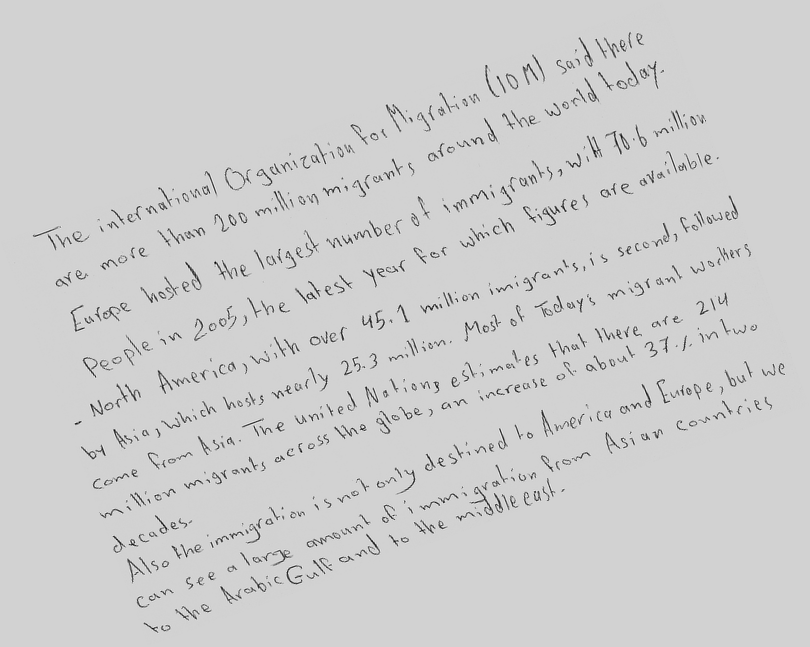 The international Organization for Migration (IOM) said there
are more than 200 million migrants around the world today.
Europe hosted the largest number of immigrants, with 70.6 million
People in 2005, the latest year for which figures are available.
- North America, with over 45.1 million imigrants, is second, followed
by Asia, which hosts nearly 25.3 million. Most of Today's migrant workers
come from Asia. The united Nations estimates that there are 214
million migrants across the globe, an increase of about 37% in two
decades.
Also the immigration is not only destined to America and Europe, but we
can see a large amount of immigration from Asian countries
to the Arabic Gulf and to the middle east.